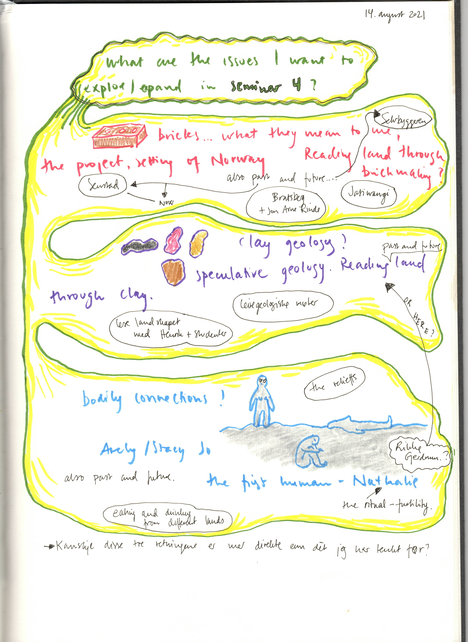 14. august 2021
what are the issues I want to
explore/expand in seminar 4?
bricks... what they mean to me,
the project, setting of Norway
Reading land through
brickmaking?
also past and future...
NOW
Bratsberg
Jatiwangi
clay geology?
past and future
speculative geology. Reading land
through clay.
leiregeologiske møter
lese landskapet
med Henrik + studenter
OR
HERE?
bodily connections!
the reliefs
/Stacy Jo
also past and future.
the first human - Nathalie
the ritual - fertility.
eating and drinking
from different lands
Kanskje disse tre retningene er mer direkte enn det jeg har tenkt før?